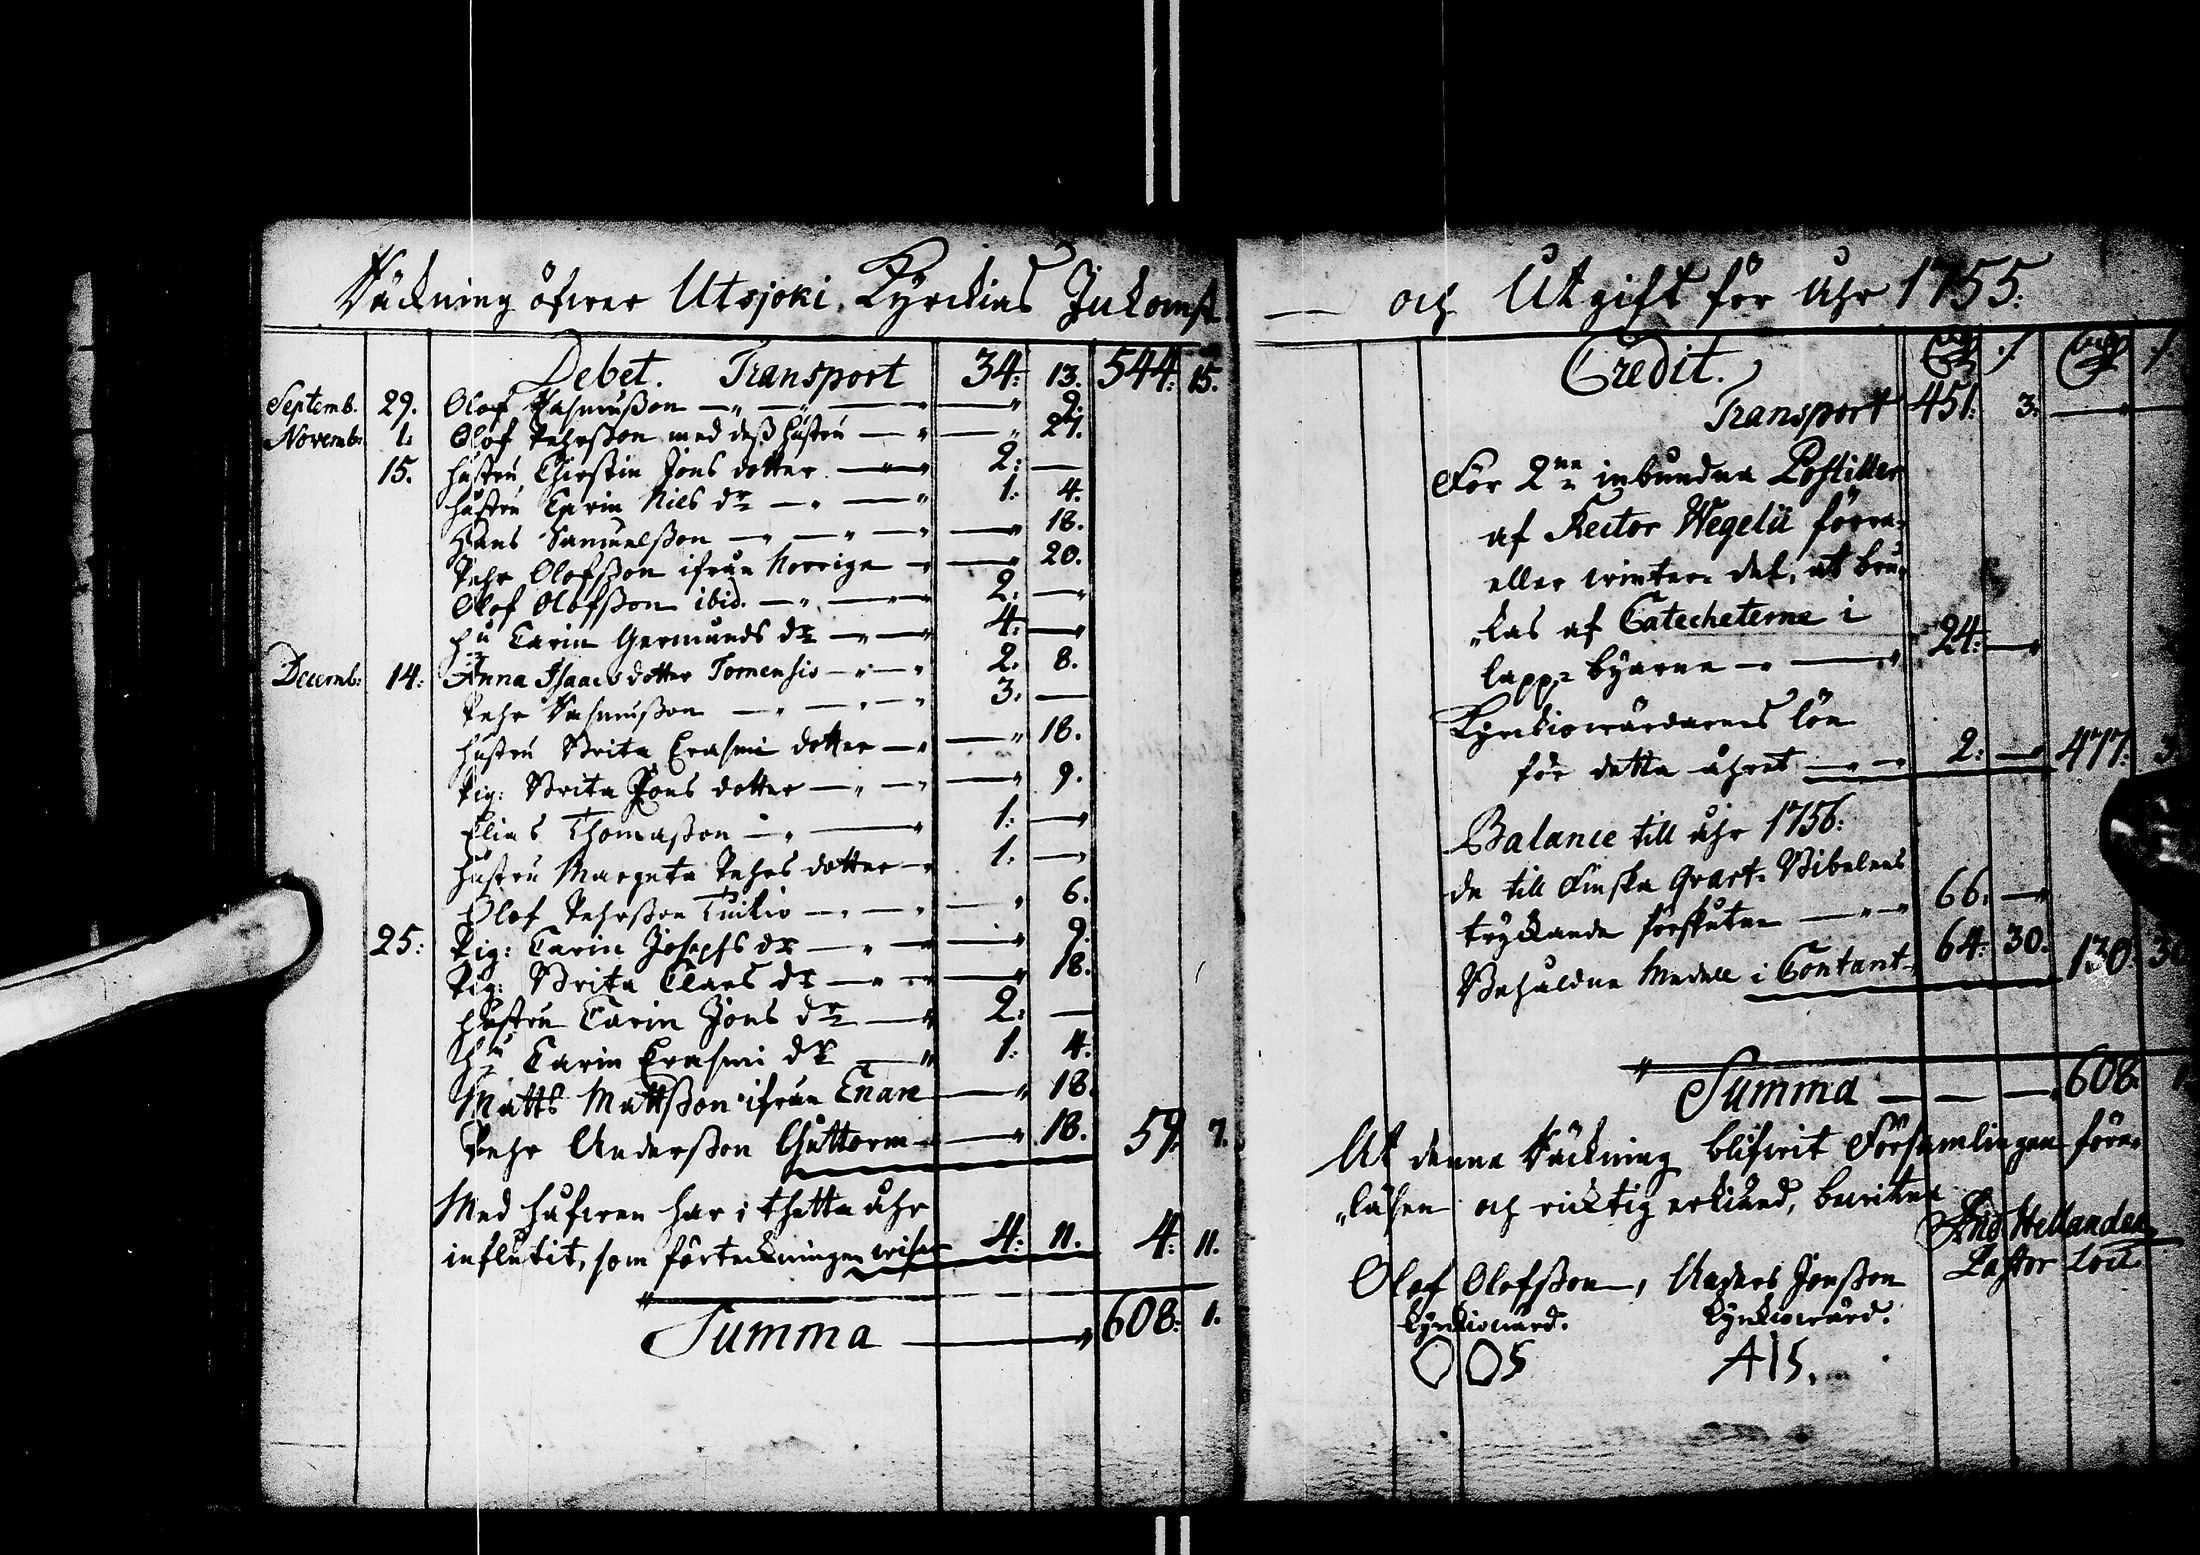 Räckning öfwer Utsjoki Kyrckias Inkomst
Debet. Transport 34: 13. 544: 15.
Septemb. 29. Olof Rasmusson — 9.
Novemb: 1. Olof Pehrsson med dess hustru — 24.
15. hustru Chirstin Jons dotter — 2: —
hustru Carin Niels dr — 1: 4.
Hans Samuelsson — 18.
Pehr Olofsson ifrån Norrige — 20.
Olof Olofsson ibid. — 2: —
hu Carin Germunds dr — 4: —
Decemb: 14: Anna Isaacs dotter Tornensis — 2. 8.
Pehr Rasmusson — 3. —
hustru Brita Erasmi dotter — 18.
Pig: Brita Jons dotter — 9.
Elias Thomasson — 1: —
hustru Margeta Pehrs dotter — 1: —
Olof Pehrsson — 6.
25: Pig: Carin Josephs dr — 9.
Pig: Brita Claes dr — 18.
hustru Carin Jons dr — 2: —
hu Carin Erasmi dr — 1: 4.
Matts Mattsson ifrån Enare — 18.
Pehr Andersson Guttorm — 18. 59. 7.
Med håfwen har i thetta åhr
influtit, som förteckningen wisar 4: 11. 4: 11.
Summa — 608: 1.
— och Utgift för åhr 1755:
Credit.
Transport 451: 3. —
För 2ne inbundna Postiller
af Rector Wegelii förra
eller winter del, at bru-
„kas af Catecheterne i
lapp-byarne — 24: —
Kyrckiowärdarnes lön
för detta åhret — 2: — 477: 3
Balance till åhr 1756:
de till Finska Qvart-Bibelens
tryckande förskutne — 66. —
Behåldne Medell i Contant 64: 30. 130: 30
Summa — 608: 1
At denna Räckning blifwit Församlingen före-
„läsen och ricktig erkiänd, bewitna
And Hellander
Pastor loci
Olof Olofsson, Anders Jonsson
Kyrckiowärd. Kyrckiowärd.
O O S A I S.